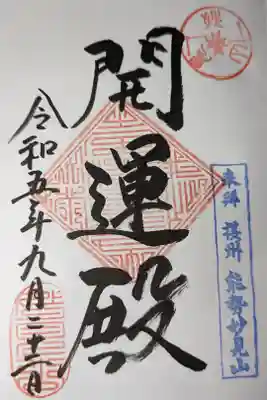 来拝 摂州 能勢妙見山
開運殿
令和五年九月二十二日